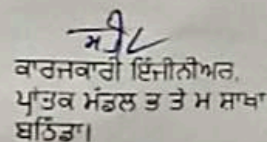 ਕਾਰਜਕਾਰੀ ਇੰਜੀਨੀਅਰ,
ਪ੍ਰਾਂਤਕ ਮੰਡਲ ਭ ਤੇ ਮ ਸ਼ਾਖਾ
ਬਠਿੰਡਾ।